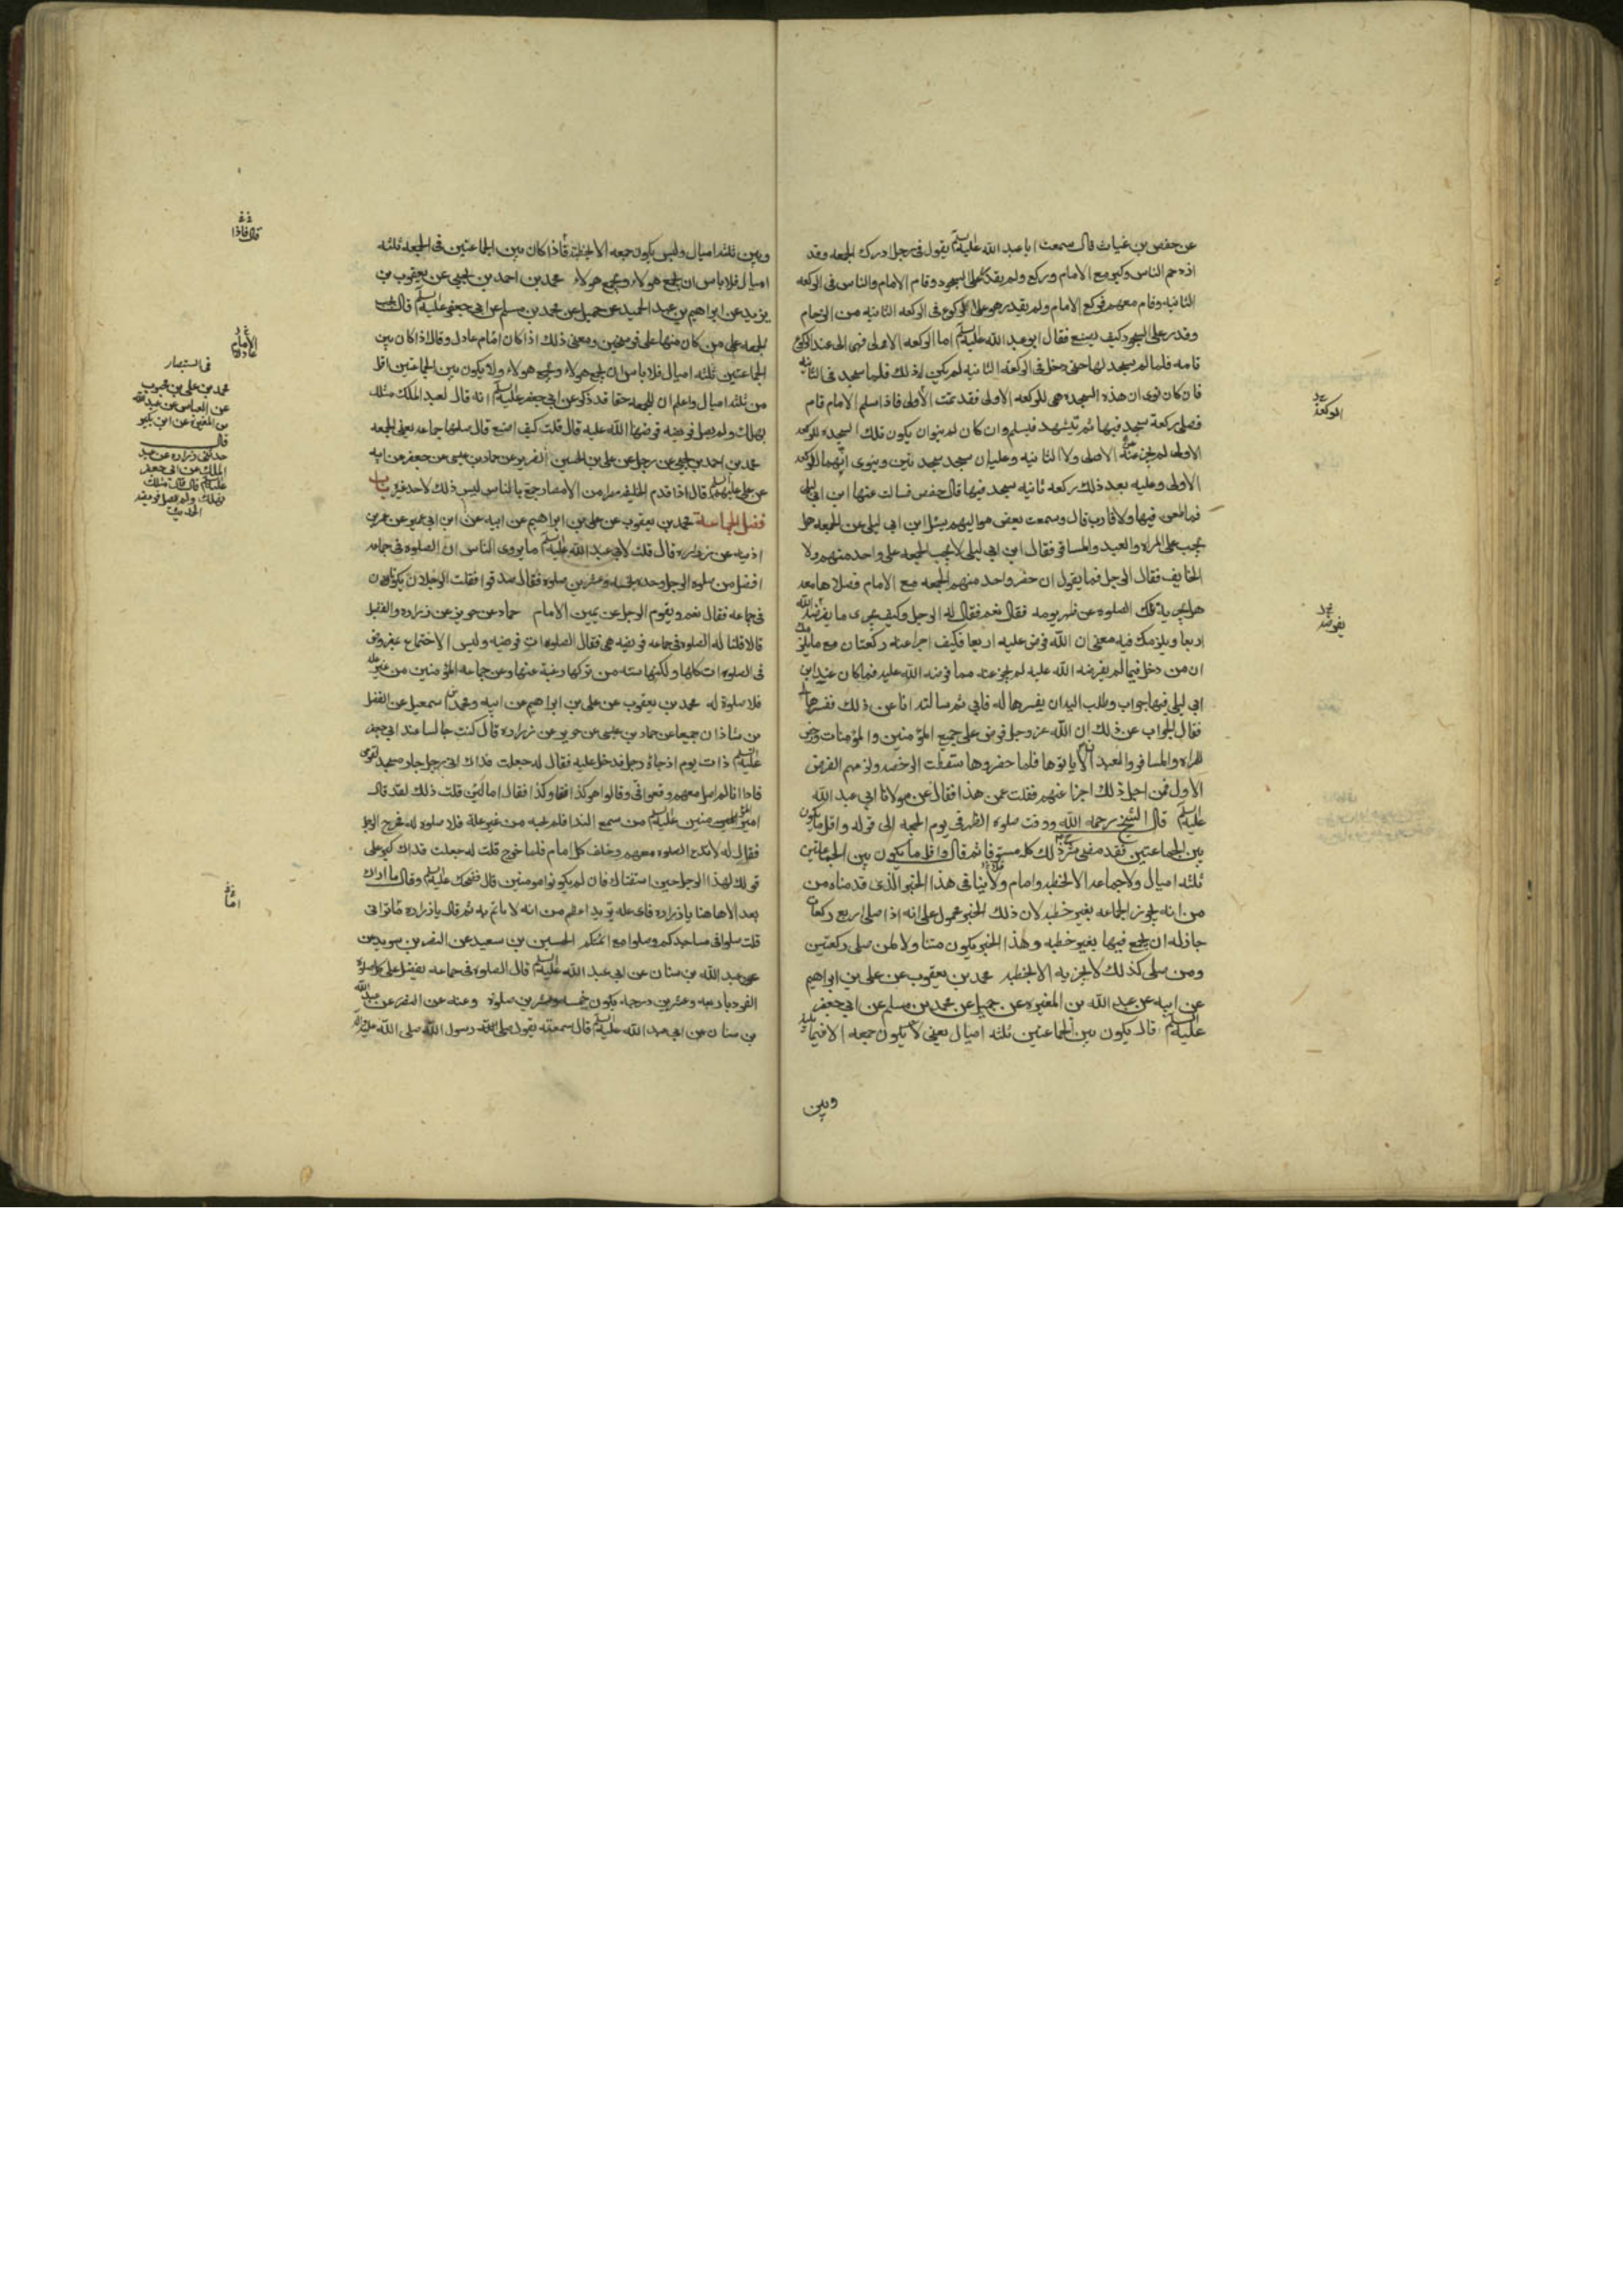 عن حفص بن غياث قال سمعت ابا عبد الله عليه السلم يقول فى رجل ادرك الجمعه وقد
ازدحم الناس وكبر مع الامام وركع ولم يقدر على السجود وقام الامام والناس فى الركعه
الثانيه وقام معهم فركع الامام ولم يقدر هو على الركوع فى الركعه الثانيه من الزحام
وقدر على السجود كيف يصنع فقال ابو عبد الله عليه السلم اما الركعه الاولى فهى الى عند الركوع
تامه فلما لم يسجد لها حتى دخل فى الركعه الثانيه لم يكن له ذلك فلما سجد فى الثانيه
فان كان نوى ان هذه السجده هى للركعه الاولى فقد تمت الأولى فاذا سلم الامام قام
فصلى ركعة سجد فيها ثم تيشهد فيسلم وان كان لم ينو ان يكون تلك السجده للركعه
الاولى لم يجز عنه الاولى ولا الثانيه وعليه ان سجد سجدتين وينوى انهما للركعه
الاولى وعليه بعد ذلك ركعه ثانيه سجد فيها قال حفص فسالت عنها ابن ابى ليلى
فما طعن فيها ولا قارب قال وسمعت بعض مواليهم يسئل ابن ابى ليلى عن الجمعه هل
يجب على المراه والعبد والمسافر فقال ابن ابى ليلى لا يجب الجمعه على واحد منهم ولا
الخايف فقال الرجل فما يقول ان حضر واحد منهم الجمعه مع الامام فصلاها معه
هل يجزيه تلك الصلوه عن ظهر يومه فقال نعم فقال له الرجل وكيف يجزى ما لم يفرضه الله
ان من دخل فيما لم يفرضه الله عليه لم يجز عنه مما فرضه الله عليه فما كان عند ابن
ابى ليلى فيها جواب وطلب اليه ان يفسرها له فابى ثم سالته انا عن ذلك ففسرها لى
فقال الجواب عن ذلك ان الله عز وجل فرض على جميع المؤمنين والمؤمنات ورخص
للمراه والمسافر والعبد ان لا ياتوها فلما حضروها سقطت الرخصه ولزمهم الفرض
الأول فمن اجل ذلك اجزا عنهم فقلت عمن هذا فقال عن مولانا ابى عبد الله
عليه السلم قال الشيخ رحمه الله ووقت صلوه الظهر فى يوم الجمعه الى قوله واقل ما يكون
بين الجماعتين فقد مضى شرح ذلك كله مستوفا ثم قال واقل ما يكون بين الجماعتين
ثلثه اميال ولا جماعه الا بخطبه وامام ولا ينافى هذا الخبر الذى قدمناه من
من انه يجوز الجماعه بغير خطبه لان ذلك الخبر محمول على انه اذا صلى اربع ركعات
جاز له ان يجمع فيها بغير خطبه وهذا الخبر يكون متناولا لمن صلى ركعتين
ومن صلى كذلك لا يجزيه الا بخطبه محمد بن يعقوب عن على بن ابراهيم
عن ابيه عن عبد الله بن المغيره عن جميل عن محمد بن مسلم عن ابى جعفر
عليه السلم قال يكون بين الجماعتين ثلثه اميال يعنى لا يكون جمعه الا فيما بينه
وبين
الركعة
يفرضه
وبين ثلثه اميال وليس يكون جمعه الا بخطبة فاذا كان بين الجماعتين فى الجمعه ثلثه
اميال فلا باس ان يجمع هولاء ويجمع هولاء محمد بن احمد بن يحيى عن يعقوب بن
يزيد عن ابراهيم بن عبد الحميد عن جميل عن محمد بن مسلم عن ابى جعفر عليه السلم قال يجب
الجمعه على من كان منها على فرسخين ومعنى ذلك اذا كان امام عادل وقال اذا كان بين
الجماعتين ثلثه اميال فلا باس ان يجمع هولاء ويجمع هولاء ولا يكون بين الجماعتين اقل
من ثلثه اميال واعلم ان للجمعه حقا قد ذكر عن ابى جعفر عليه السلم انه قال لعبد الملك مثلك
يهلك ولم يصل فريضه فرضها الله عليه قال قلت كيف اصنع قال صلها جماعه يعنى الجمعه
محمد بن احمد بن يحيى عن رجل عن على بن الحسين الضرير عن حماد بن عيسى عن جعفر عن ابيه
عن على عليهم السلم قال اذا قدم الخليفه مصرا من الامصار جمع بالناس ليس ذلك لاحد غيره باب
فضل الجماعة محمد بن يعقوب عن على بن ابراهيم عن ابيه عن ابن ابى عمير عن عمر بن
اذينه عن زراره قال قلت لأبى عبد الله عليه السلم ما يروى الناس ان الصلوه فى جماعه
افضل من صلوه الرجل وحده بخمسه وعشرين صلوه فقال صدقوا فقلت الرجلان يكونان
فى جماعه فقال نعم ويقوم الرجل عن يمين الامام حماد عن حريز عن زراره والفضيل
قالا قلنا له الصلوه فى جماعه فريضه هى فقال الصلوات فريضه وليس الاجتماع بمفروض
فى الصلوات كلها ولكنها سنه من تركها رغبة عنها وعن جماعه المؤمنين من غير عله
فلا صلوة له محمد بن يعقوب عن على بن ابراهيم عن ابيه ومحمد بن اسمعيل عن الفضل
بن شاذان جميعا عن حماد بن عيسى عن حريز عن زراره قال كنت جالسا عند ابى جعفر
عليه السلم ذات يوم اذ جاءه رجل فدخل عليه فقال له جعلت فداك انى رجل جار مسجد لقومى
فاذا انا لم اصل معهم وقعوا فى وقالوا هو كذا وكذا فقال اما لئن قلت ذلك لقد قال
امير المؤمنين عليه السلم من سمع الندا فلم يجبه من غير علة فلا صلوه له فخرج الرجل
فقال له لا تدع الصلوه معهم وخلف كل امام فلما خرج قلت له جعلت فداك كبر على
قولك لهذا الرجل حين استفتاك فان لم يكونوا مومنين قال فضحك عليه السلم وقال ما اراك
بعد الا هاهنا يا زراره فاى عله تريد اعظم من انه لا ياتم به ثم قال يا زراره ما ترانى
قلت صلوا فى مساجدكم وصلوا مع ائمتكم الحسين بن سعيد عن النضر بن سويد عن
عن عبد الله بن سنان عن ابى عبد الله عليه السلم قال الصلوه فى جماعه يفضل على كل صلوة
الفرد باربعه وعشرين درجه يكون خمسه وعشرين صلوة وعنه عن النضر عن عبد الله
بن سنان عن ابى عبد الله عليه السلم قال سمعته يقول صلى رسول الله صلى الله عليه واله
قال فاذا
الامام
عادلا
فى استبصار
محمد بن على بن محبوب
عن العباس عن عبد الله
بن المغيرة عن ابن بكير
قال
حدثنى زراره عن عبد
الملك عن ابى جعفر
عليه السلم قال قال مثلك
يهلك ولم يصل فريضه
الحديث
اما